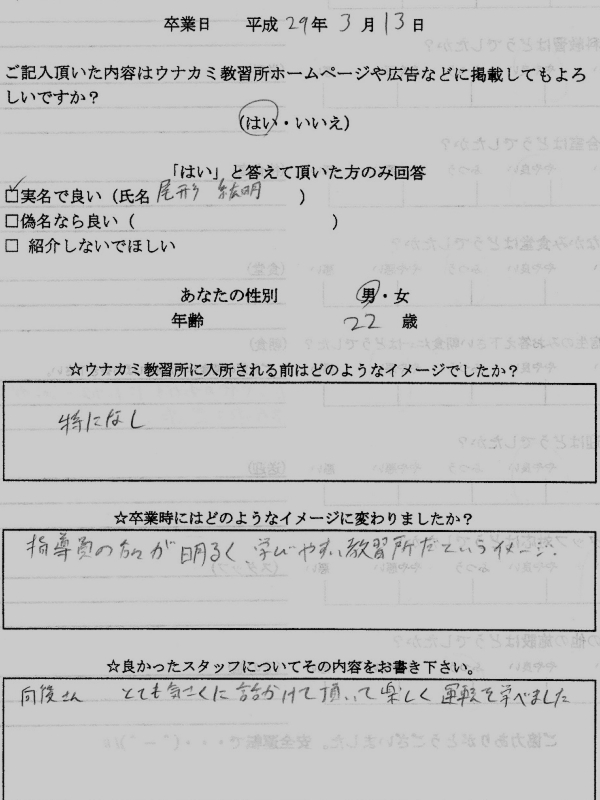 卒業日 平成29年3月13日
ご記入頂いた内容はウナカミ教習所ホームページや広告などに掲載してもよろ
しいですか？
(はい・いいえ)
「はい」と答えて頂いた方のみ回答
☑実名で良い（氏名 尾形 紘明 ）
□偽名なら良い（ ）
□ 紹介しないでほしい
あなたの性別 男・女
年齢 22 歳
☆ウナカミ教習所に入所される前はどのようなイメージでしたか？
特になし
☆卒業時にはどのようなイメージに変わりましたか？
指導員の方々が明るく 学びやすい教習所だというイメージ.
☆良かったスタッフについてその内容をお書き下さい。
向後さん とても気さくに話かけて頂いて楽しく運転を学べました